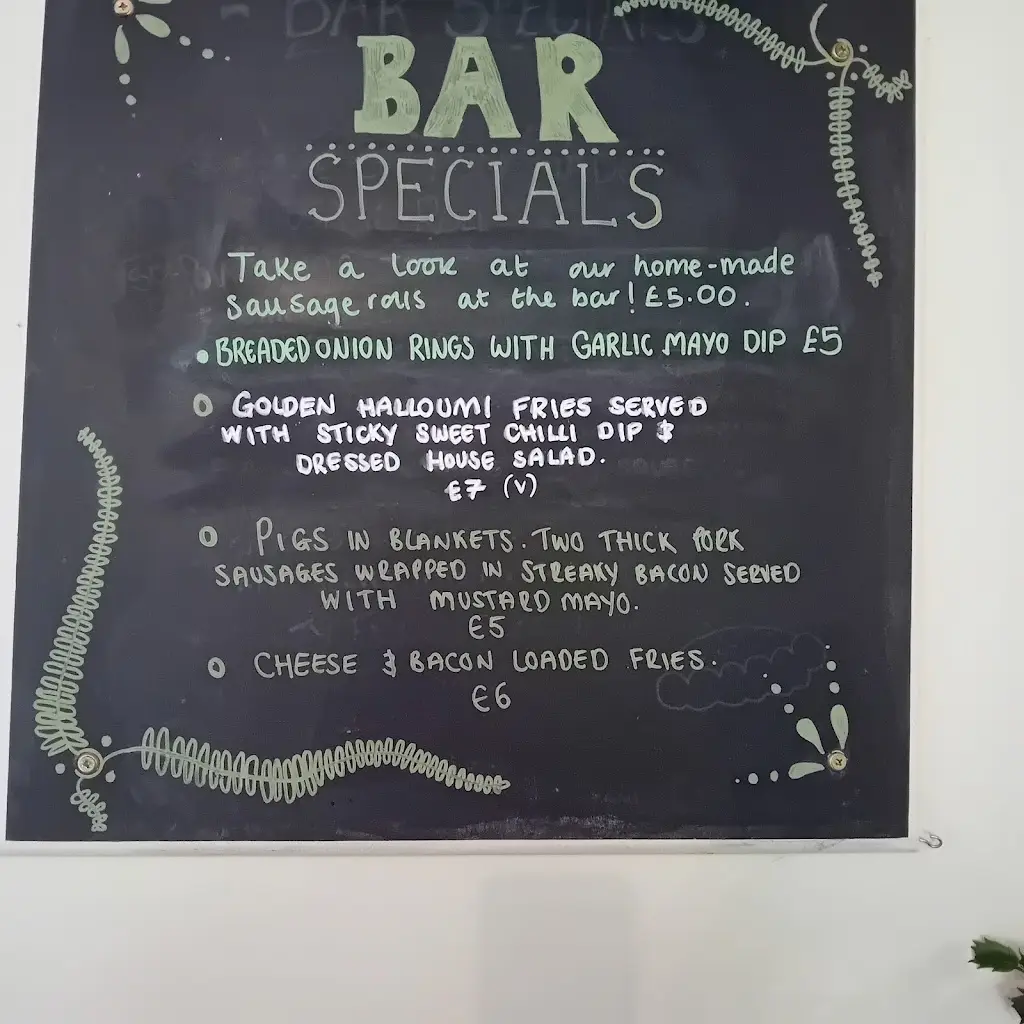 BAR SPECIALS
BAR
SPECIALS
Take a look at our home-made
sausage rolls at the bar! £5.00.
• BREADED ONION RINGS WITH GARLIC MAYO DIP £5
GOLDEN HALLOUMI FRIES SERVED
WITH STICKY SWEET CHILLI DIP &
DRESSED HOUSE SALAD.
£7 (V)
PIGS IN BLANKETS. TWO THICK PORK
SAUSAGES WRAPPED IN STREAKY BACON SERVED
WITH MUSTARD MAYO.
£5
CHEESE & BACON LOADED FRIES.
£6